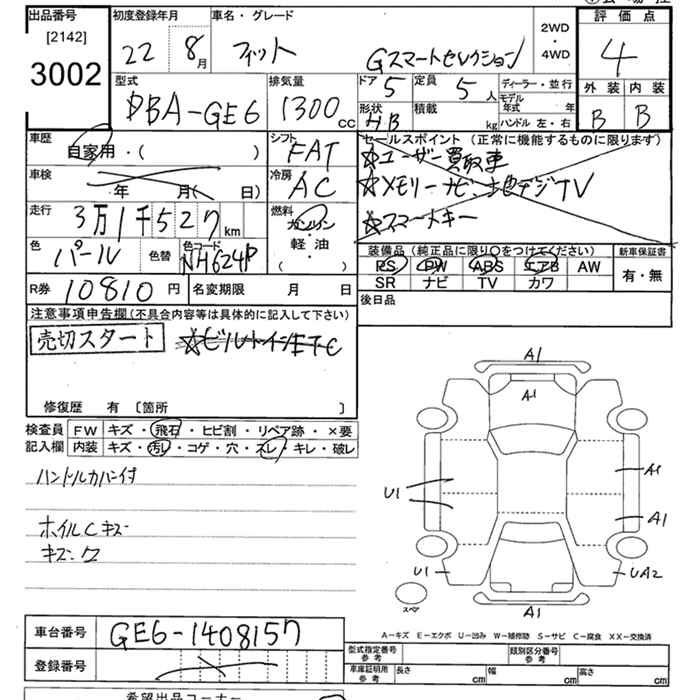 出品番号 初度登録年月 車名・グレード 2WD・4WD 評価点
[2142]
3002
22 8月 フィット Gスマートセレクション 4
型式 排気量 ドア 5 定員 5人 ディーラー・並行 外装 内装
DBA-GE6 1300cc 形状 HB 積載 kg モデル年式 年 B B
ハンドル 左・右
車歴 自家用・( ) シフト FAT セールスポイント (正常に機能するものに限ります)
☆ユーザー買取車
車検 年 月( 日) 冷房 AC ☆メモリーナビ、地デジTV
走行 3万1千527km 燃料 ガソリン・軽・油 ( ) ☆スマートキー
色 パール 色替 色コード NH624P 装備品 (純正品に限り○をつけてください) 新車保証書
PS PW ABS エアB AW 有・無
R券 10810円 名変期限 月 日 SR ナビ TV カワ
後日品
注意事項申告欄(不具合内容等は具体的に記入して下さい)
売切スタート ☆ビルトインETC
修復歴 有 〔箇所 〕
検査員記入欄 FW キズ・飛石・ヒビ割・リペア跡・×要
内装 キズ・汚レ・コゲ・穴・スレ・キレ・破レ
ハンドルカバー付
ホイルCキズ
キズ、ワ
A1
A1
A1
U1
A1
U1 UA2
スペア
A1
A-キズ E-エクボ U-凹み W-補修跡 S-サビ C-腐食 XX-交換済
車台番号 GE6-1408157
型式指定番号 参考 類別区分番号 参考
登録番号
車庫証明用 参考 長さ cm 幅 cm 高さ cm
希望出品コーナー